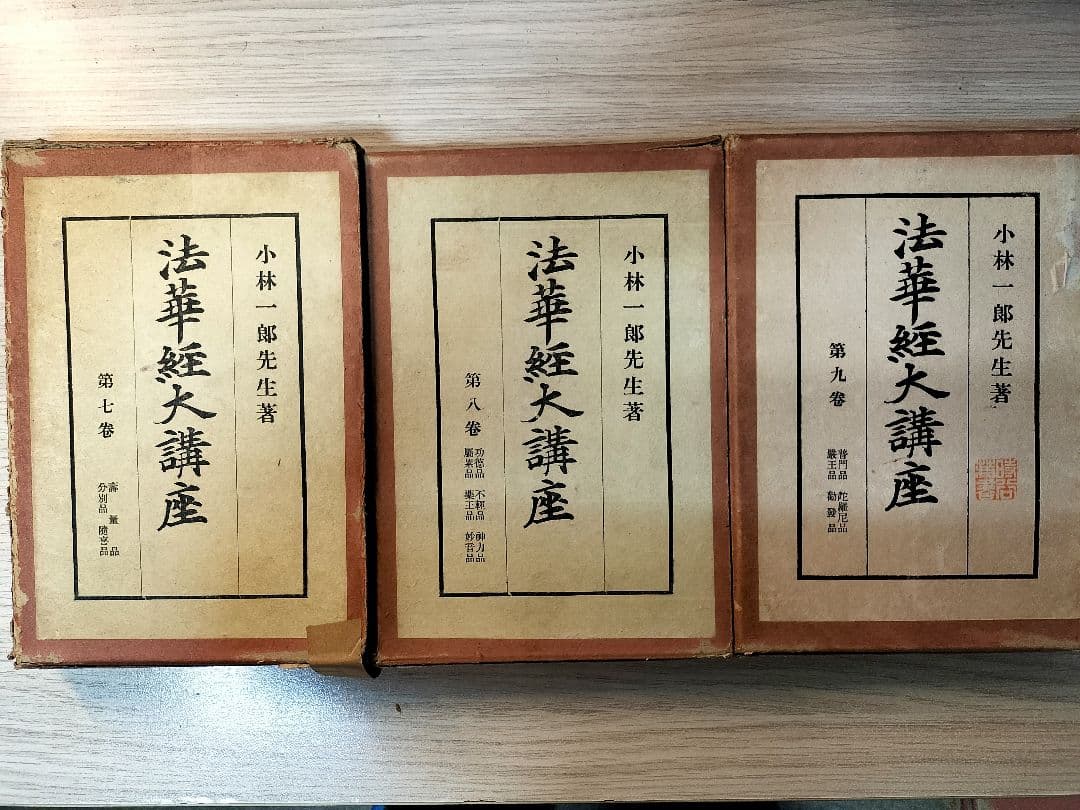 小林一郎先生著
法華經大講座
第七卷
壽量品
分別品 隨喜品
小林一郎先生著
法華經大講座
第八卷
功德品 不輕品 神力品
屬累品 藥王品 妙音品
小林一郎先生著
法華經大講座
第九卷
普門品 陀羅尼品
嚴王品 勸發品